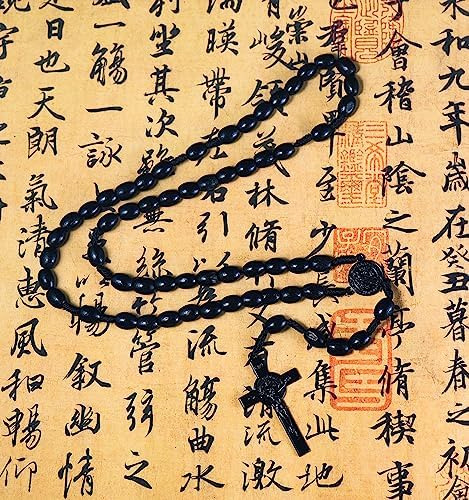 和九年歲在癸丑暮春之初
會稽山陰之蘭亭脩稧事
群賢畢至少長集此地
崇山
有峻領茂林脩清流激
湍暎帶左右引流觴曲水
列坐其次雖無絲竹管弦之
一觴一詠暢叙幽情
是日也天朗氣清惠風和暢仰